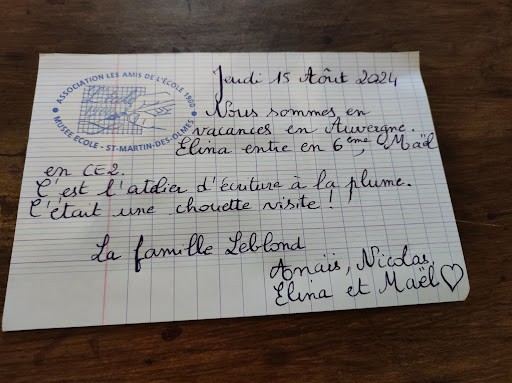 ASSOCIATION LES AMIS DE L'ÉCOLE 1900
MUSÉE ECOLE - ST-MARTIN-DES-OLMES
Jeudi 15 Août 2024
Nous sommes en
vacances en Auvergne.
Elina entre en 6ème, Maël
en CE2.
C'est l'atelier d'écriture à la plume.
C'était une chouette visite !
La famille Leblond
Anaïs, Nicolas,
Elina et Maël ♡